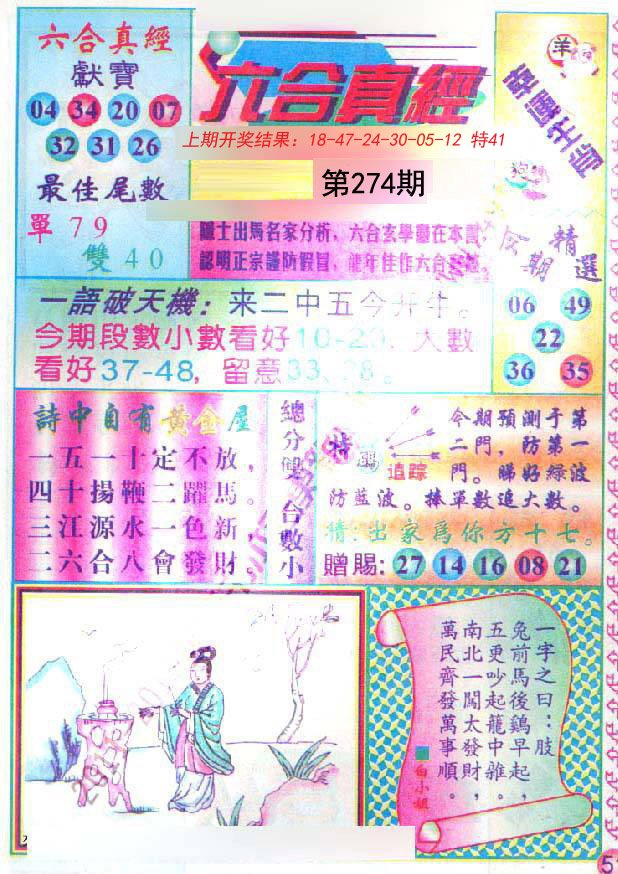 六合真經
獻寶
04 34 20 07
32 31 26
最佳尾數
單79
雙40
六合真經
上期开奖结果：18-47-24-30-05-12 特41
第274期
隱士出馬名家分析，六合玄學盡在本書，
認明正宗謹防假冒，龍年佳作六合
羊
狗
期精選
06 49
22
36 35
一語破天機：来二中五今开牛。
今期段數小數看好10-20，大數
看好37-48，留意33、
詩中自有黃金屋
一五一十定不放，
四十揚鞭二躍馬。
三江源水一色新，
二六合八會發財。
總分雙 合數小
特碼
追踪
今期預測于第
二門，防第一
門。睇好綠波
防藍波。捧單數追大數。
猜：出家爲你方十七。
贈賜：27 14 16 08 21
一字之曰：肢
兔前馬後鷄早起，
五更吵起籠中雜。
南北一闖太發財，
萬民齊發萬事順。
白小姐